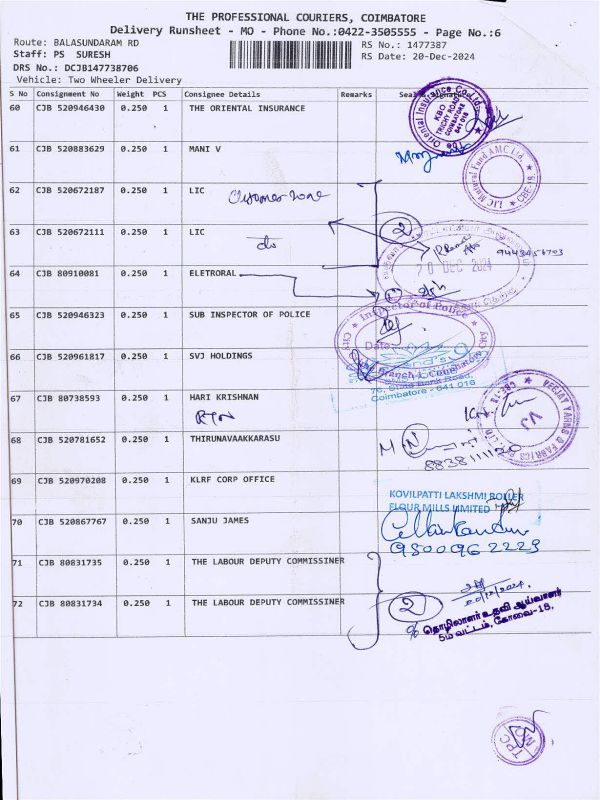 THE PROFESSIONAL COURIERS, COIMBATORE
Delivery Runsheet - MO - Phone No.:0422-3505555 - Page No.:6
Route: BALASUNDARAM RD
RS No.: 1477387
Staff: PS SURESH
RS Date: 20-Dec-2024
DRS No.: DCJB147738706
Vehicle: Two Wheeler Delivery
S No Consignment No Weight PCS Consignee Details Remarks Seal & Signature
60 CJB 520946430 0.250 1 THE ORIENTAL INSURANCE
Oriental Insurance Co. Ltd.
KBO
TRICHY ROAD
COIMBATORE
641 018
61 CJB 520883629 0.250 1 MANI V
LIC Mutual Fund AMC Ltd.
CBE-18.
62 CJB 520672187 0.250 1 LIC
63 CJB 520672111 0.250 1 LIC
do
2
9443456703
20 DEC 2024
64 CJB 80910081 0.250 1 ELETRORAL
65 CJB 520946323 0.250 1 SUB INSPECTOR OF POLICE
Inspector of Police
Date
66 CJB 520961817 0.250 1 SVJ HOLDINGS
76, State Bank Road,
Coimbatore - 641 018
67 CJB 80738593 0.250 1 HARI KRISHNAN
RTN
VEEJAY YARNS & FABRICS P. LTD
CBE-18
VJ
68 CJB 520781652 0.250 1 THIRUNAVAAKKARASU
8838111120
69 CJB 520970208 0.250 1 KLRF CORP OFFICE
KOVILPATTI LAKSHMI ROLLER
FLOUR MILLS LIMITED
70 CJB 520867767 0.250 1 SANJU JAMES
9500962223
71 CJB 80831735 0.250 1 THE LABOUR DEPUTY COMMISSINER
72 CJB 80831734 0.250 1 THE LABOUR DEPUTY COMMISSINER
2
20/12/2024
தொழிலாளர் உதவி ஆய்வாளர்
5ம் வட்டம், கோவை-18.